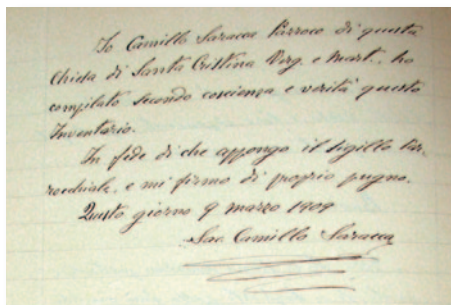 Io Camillo Saracca Parroco di questa
Chiesa di Santa Cristina Verg. e Mart., ho
compilato secondo coscienza e verità questo
Inventario.
In fede di che appongo il sigillo Par-
rocchiale, e mi firmo di proprio pugno.
Questo giorno 9 marzo 1909
Sac. Camillo Saracca